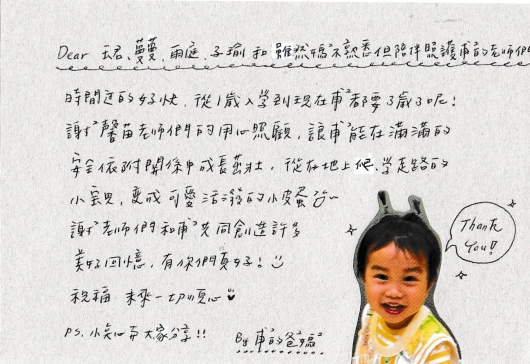 Dear 珺君、蔓蔓、雨庭、子瑜 和 雖然媽媽不熟悉但陪伴照護甫甫的老師們
時間過的好快，從1歲入學到現在甫甫都要3歲了呢！
謝謝馨苗老師們的用心照顧，讓甫甫能在滿滿的
安全依附關係中成長茁壯，從在地上爬、學走路的
小寶貝，變成可愛活潑的小皮蛋
謝謝老師們和甫甫共同創造許多
美好回憶，有你們真好！
祝福 未來一切順心
P.S. 小點心予大家分享！！
By 甫甫的爸爸媽媽
Thank
You!